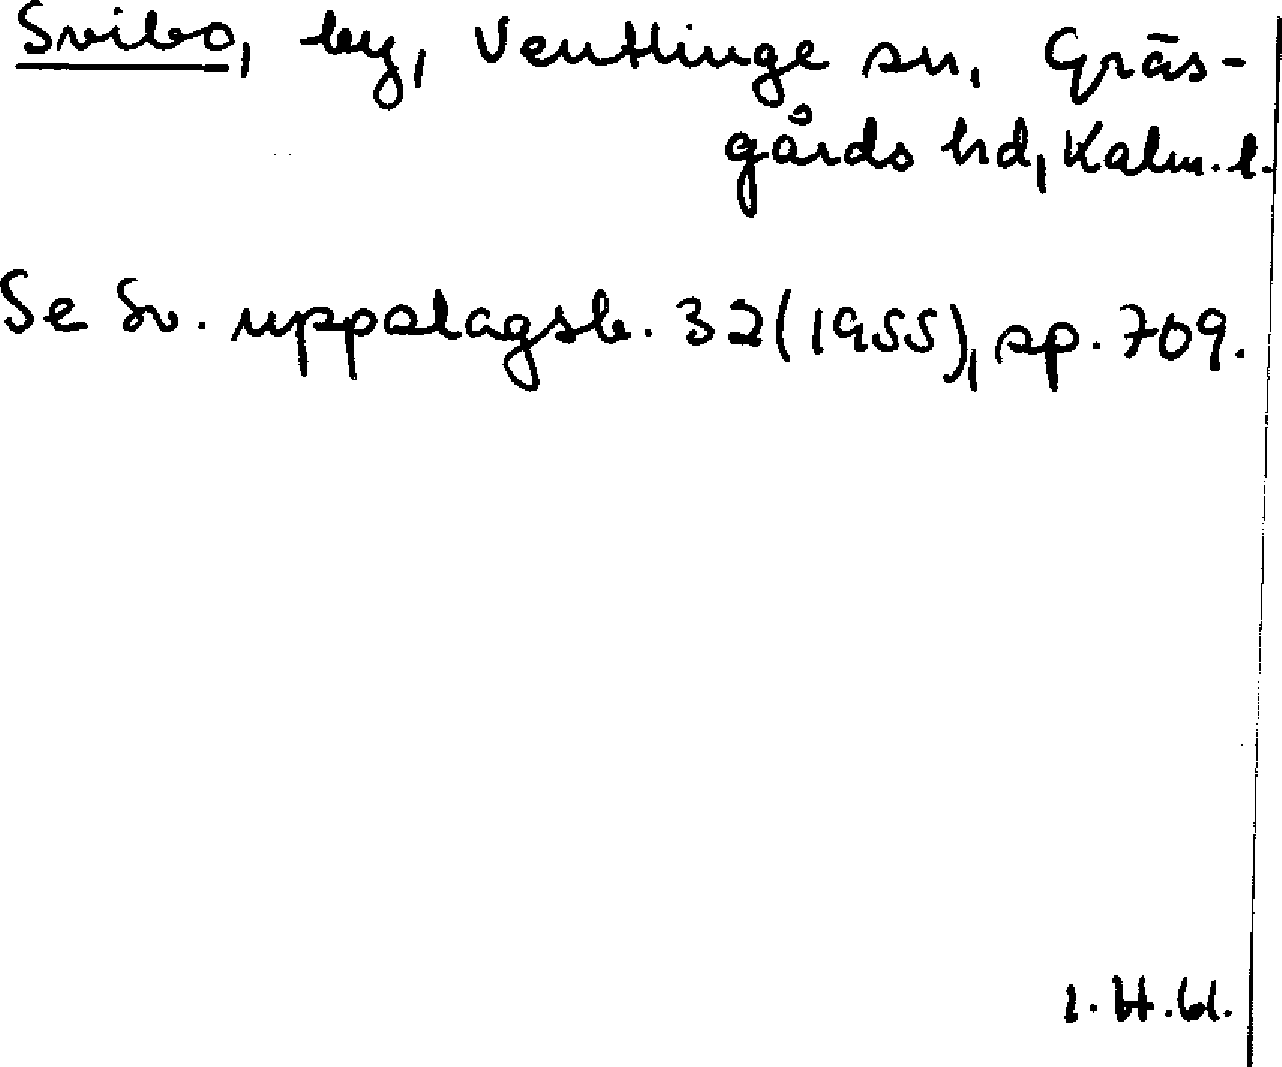 Svibo, by, Ventlinge sn, Gräs-
gårds hd, Kalm. l.
Se Sv. uppslagsb. 32 (1955), sp. 709.
I. H. 61.